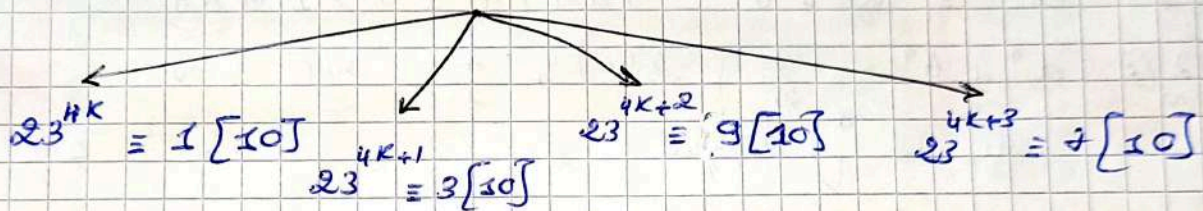 23^{4K} ≡ 1 [10]
23^{4K+1} ≡ 3 [10]
23^{4K+2} ≡ 9 [10]
23^{4K+3} ≡ 7 [10]